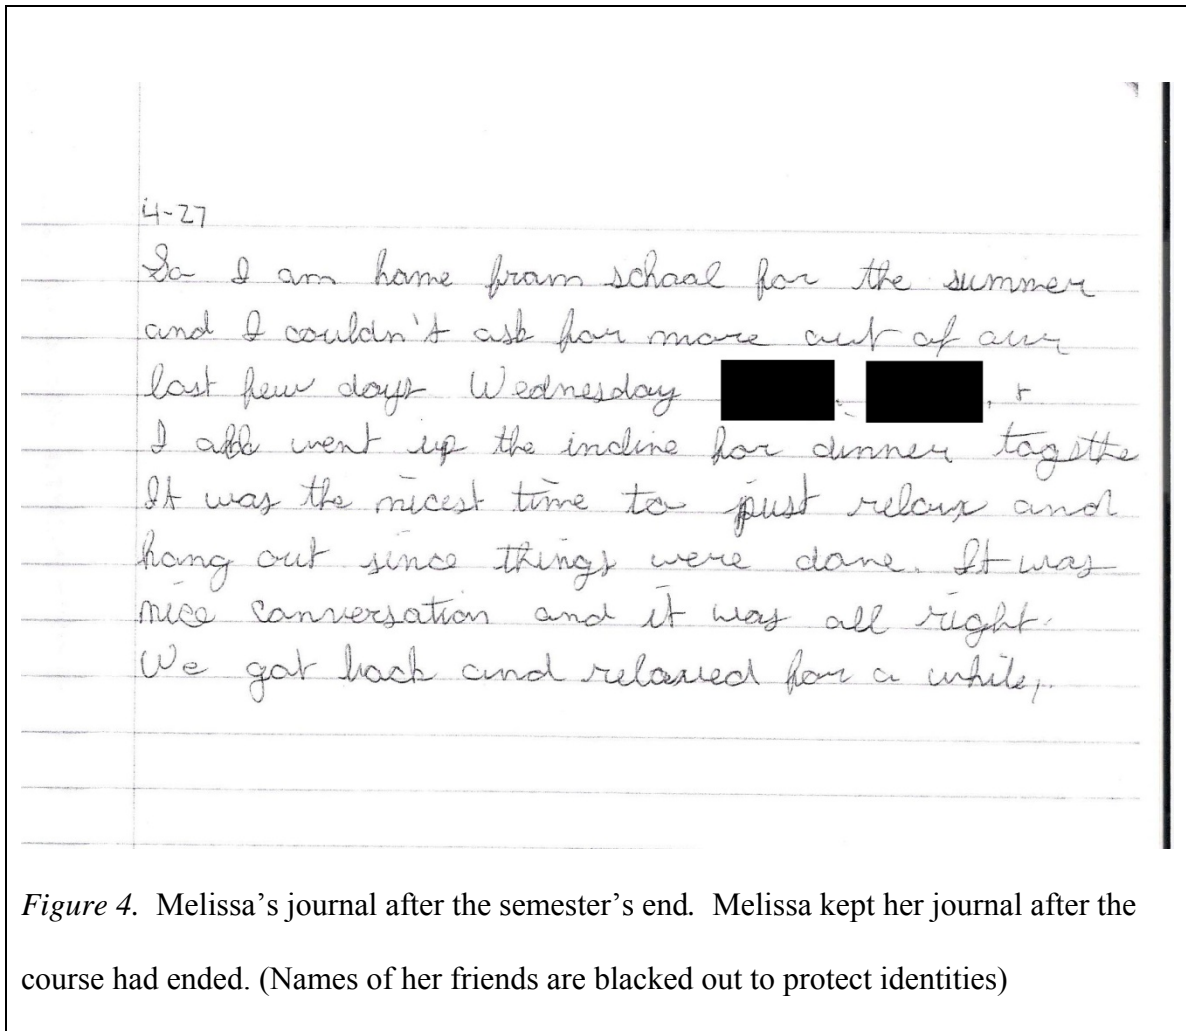 4-27
So I am home from school for the summer
and I couldn't ask for more out of our
last few days Wednesday , +
I all went up the incline for dinner togethe
It was the nicest time to just relax and
hang out since things were done. It was
nice conversation and it was all right.
We got back and relaxed for a while,.
Figure 4. Melissa's journal after the semester's end. Melissa kept her journal after the
course had ended. (Names of her friends are blacked out to protect identities)